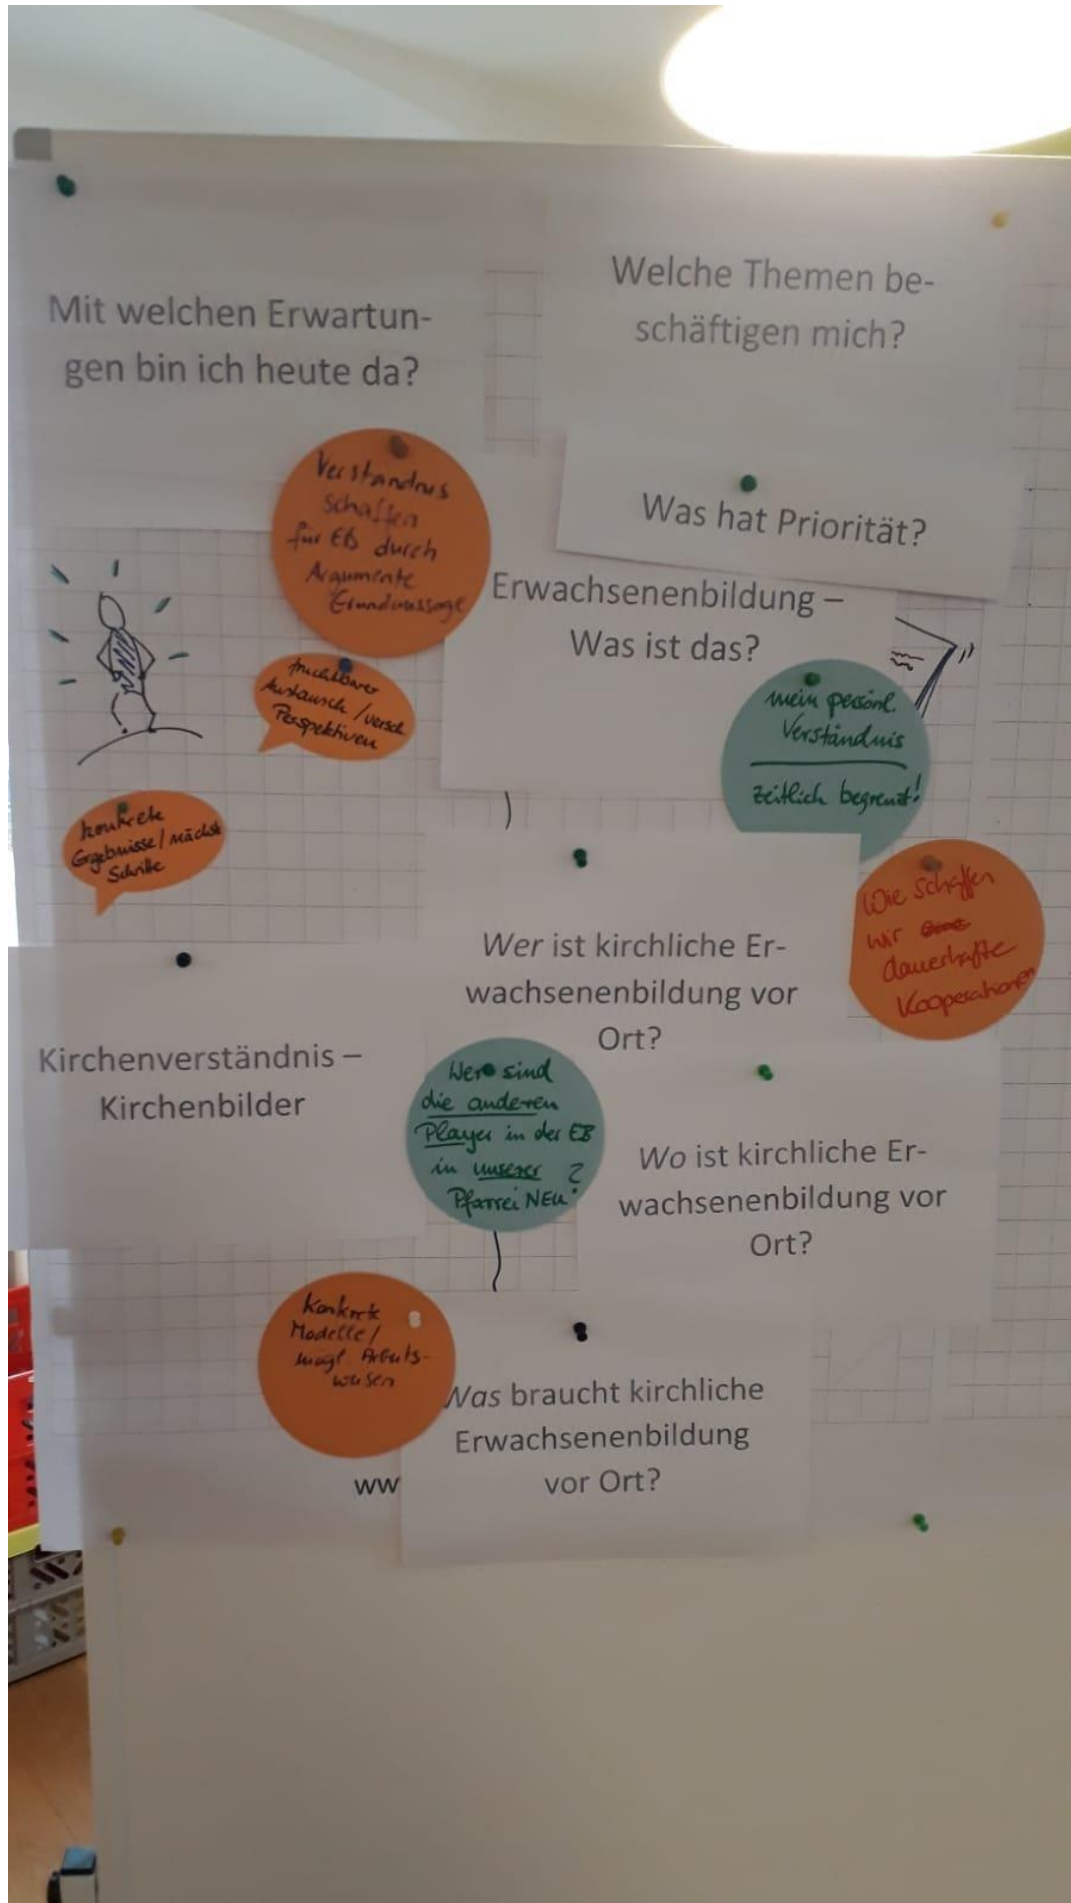 Mit welchen Erwartun-
gen bin ich heute da?
Welche Themen be-
schäftigen mich?
Was hat Priorität?
Verständnis
schaffen
für EB durch
Argumente
Grundaussage
Erwachsenenbildung –
Was ist das?
fruchtbarer
Austausch / versch
Perspektiven
mein persönl.
Verständnis
zeitlich begrenzt!
konkrete
Ergebnisse / nächste
Schritte
Wie schaffen
wir
dauerhafte
Kooperationen
Wer ist kirchliche Er-
wachsenenbildung vor
Ort?
Kirchenverständnis –
Kirchenbilder
Wer sind
die anderen
Player in der EB
in unserer ?
Pfarrei NEU
Wo ist kirchliche Er-
wachsenenbildung vor
Ort?
Konkrete
Modelle /
mögl Arbeits-
weisen
Was braucht kirchliche
Erwachsenenbildung
vor Ort?
ww